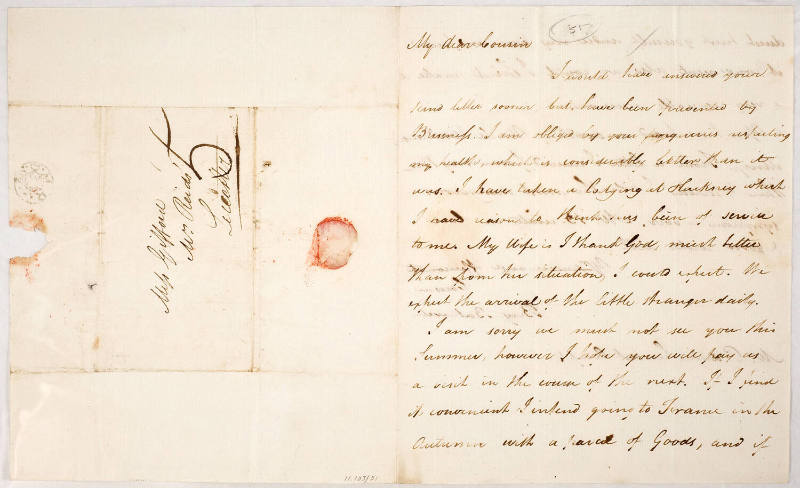 Miss Gifford
Mrs Reids
Leicester
55
My dear Cousin
I would have answered your
kind letter sooner but have been prevented by
Business. I am obliged by your enquiries respecting
my health, which is considerably better than it
was. I have taken a Lodging at Hackney which
I have reason to think has been of service
to me. My Wife is I thank God, much better
than from her situation I could expect. We
expect the arrival of the little stranger daily.
I am sorry we must not see you this
Summer, however I hope you will pay us
a visit in the course of the next. If I find
it convenient I intend going to France in the
Autumn with a parcel of Goods, and if